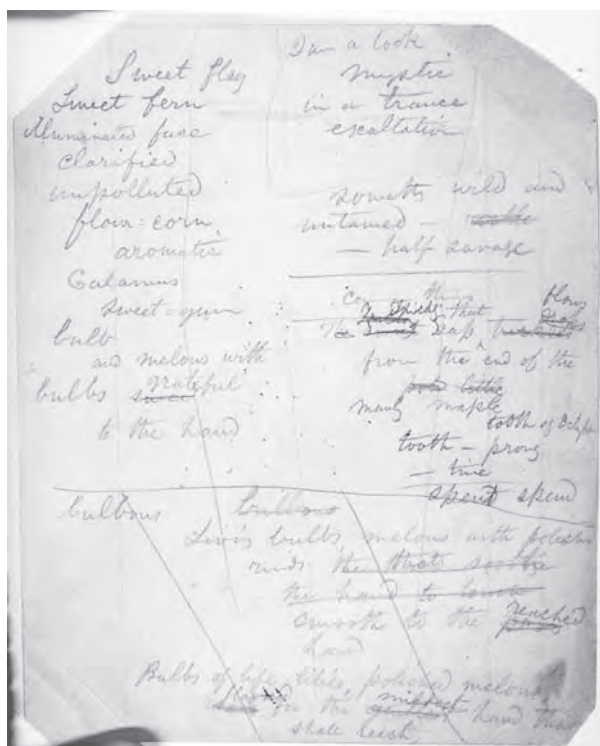 Sweet flag
Sweet fern
Illuminated face
clarified
unpolluted
flour-corn
aromatic
Calamus
sweet-gum
bulb
and melons with
bulbs grateful
to the hand
I am a look
mystic
in a trance
exaltation
something wild and
untamed —
— half savage
The sap
from the end of the
manly maple
tooth of
tooth — prong
— tine
spent spend
bulbous bulbous
Living bulbs, melons with polished
rinds the that soothe
the hand to touch
smooth to the reached
hand
Bulbs of life, lilies, polished melons
for the hand that
shall reach